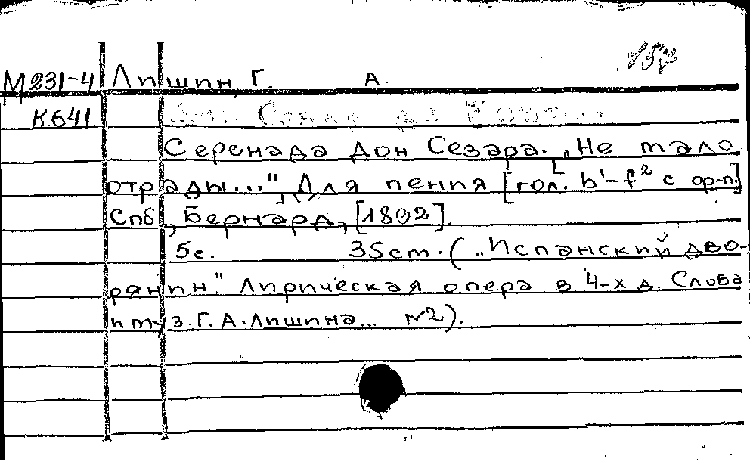 М231-4 Лишин, Г. А.
К641
Серенада Дон Сезара. „Не мало
отрады..." Для пения [гол. b¹-f² с ф-п.]
Спб, Бернард, [1892].
5с. 35cm. („Испанский дво-
рянин." Лирическая опера в 4-х д. Слова
и муз. Г. А. Лишина... №2).